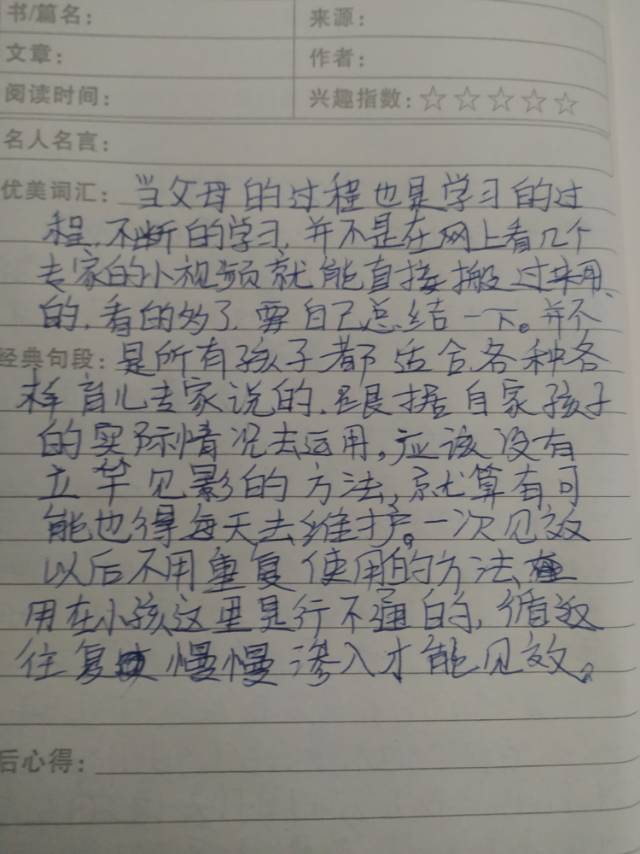 书/篇名： 来源：
文章： 作者：
阅读时间： 兴趣指数：☆☆☆☆☆
名人名言：
优美词汇： 当父母的过程也是学习的过
程，不断的学习，并不是在网上看几个
专家的小视频就能直接搬过来用
的，看的多了，要自己总结一下。并不
经典句段：是所有孩子都适合各种各
样育儿专家说的，是根据自家孩子
的实际情况去运用，应该没有
立竿见影的方法，就算有可
能也得每天去维护。一次见效
以后不用重复使用的方法
用在小孩这里是行不通的，循返
往复 慢慢渗入才能见效。
后心得：